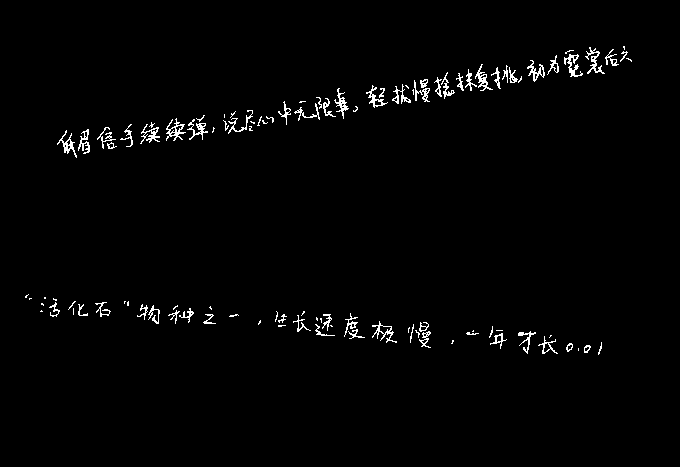 低眉信手续续弹,说尽心中无限事。轻拢慢捻抹复挑,初为霓裳后六
“活化石”物种之一,生长速度极慢,一年才长0.01